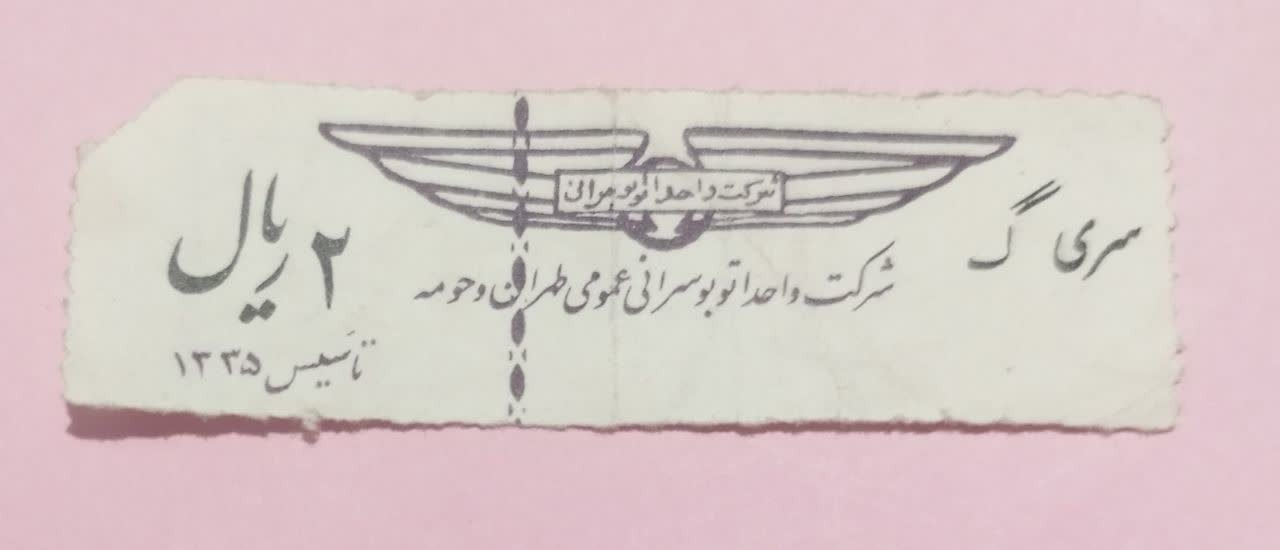 شرکت واحد اتوبوسرانی
سری گ
شرکت واحد اتوبوسرانی عمومی طهران و حومه
۲ ریال
تأسیس ۱۳۳۵